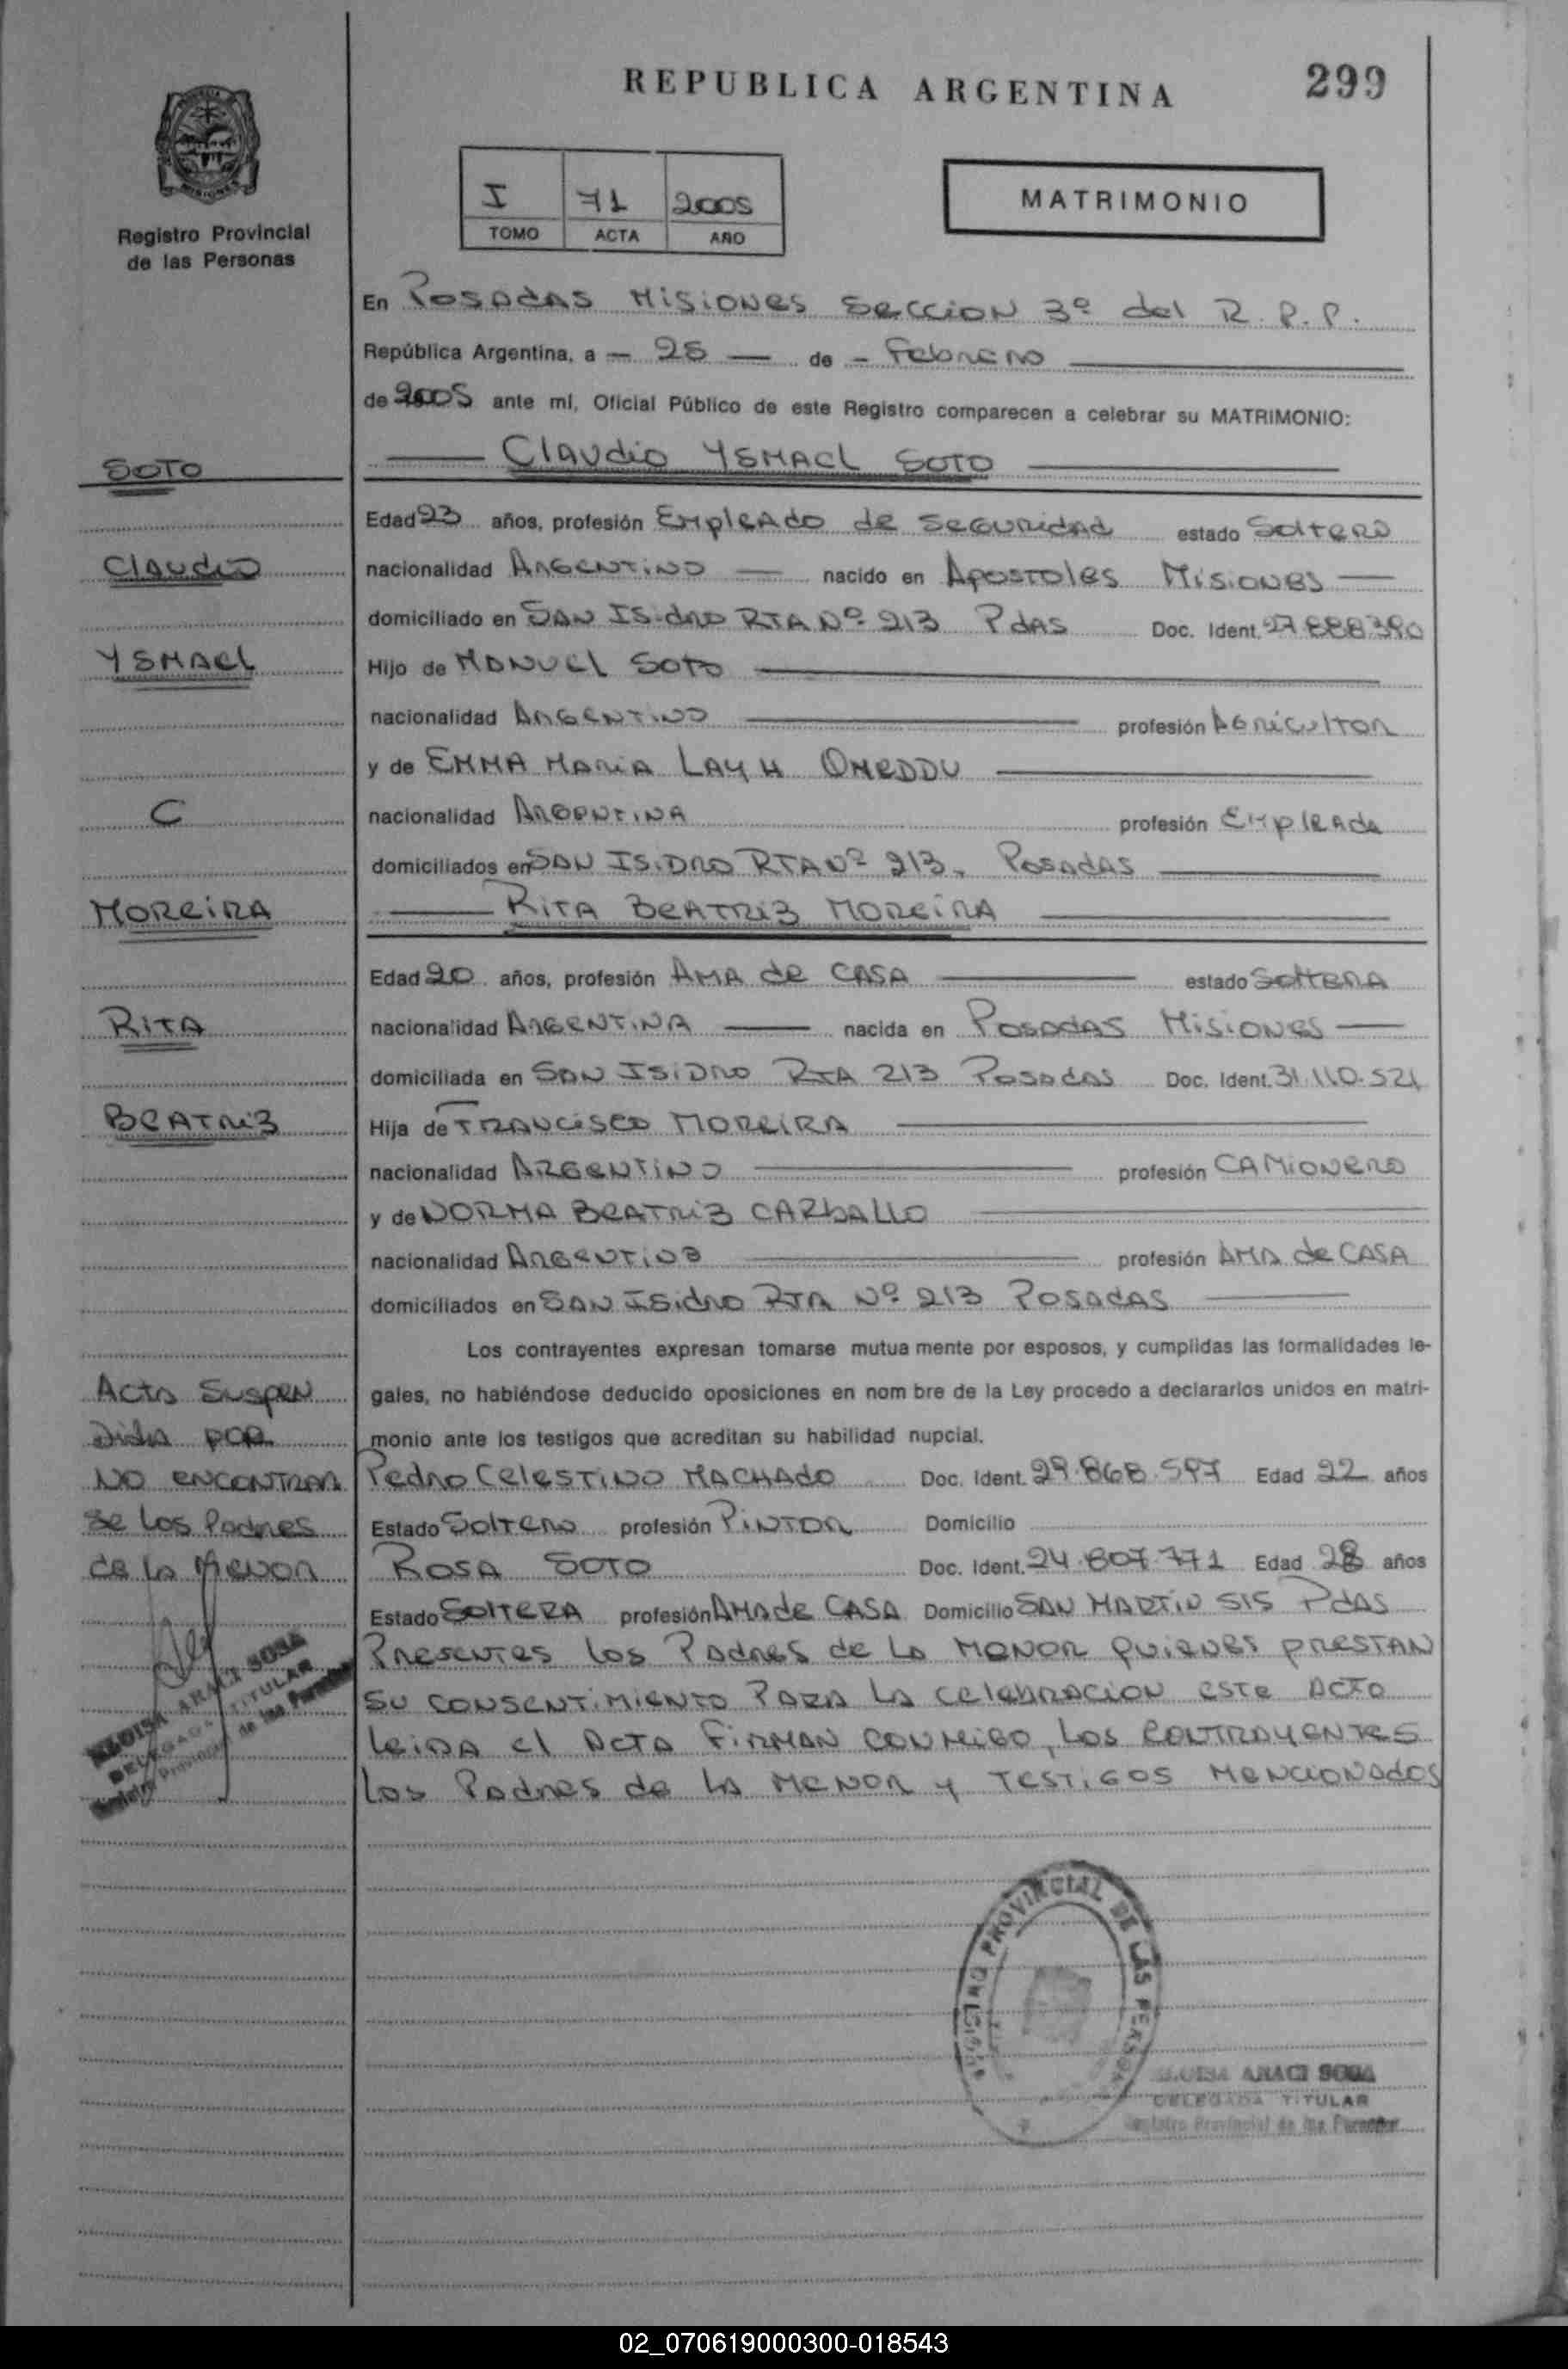 REPUBLICA ARGENTINA
299
MISIONES
Registro Provincial
de las Personas
I 71 2005
TOMO ACTA AÑO
MATRIMONIO
En Posadas Misiones Seccion 3º del R.P.P.
República Argentina, a — 25 — de - Febrero
de 2005 ante mí, Oficial Público de este Registro comparecen a celebrar su MATRIMONIO:
Claudio Ysmael Soto
Soto
Edad 23 años, profesión Empleado de Seguridad estado Soltero
Claudio
nacionalidad Argentino — nacido en Apostoles Misiones —
domiciliado en San Isidro RTA Nº 213 Pdas Doc. Ident. 27.888.390
Ysmael
Hijo de Manuel Soto
nacionalidad Argentino profesión Agricultor
y de Emma Maria
nacionalidad Argentina profesión Empleada
C
domiciliados en San Isidro RTA Nº 213, Posadas
Moreira
Rita Beatriz Moreira
Edad 20 años, profesión Ama de casa estado Soltera
Rita
nacionalidad Argentina — nacida en Posadas Misiones —
domiciliada en San Isidro RTA 213 Posadas Doc. Ident. 31.110.521
Beatriz
Hija de Francisco Moreira
nacionalidad Argentino profesión Camionero
y de Norma Beatriz Carballo
nacionalidad Argentina profesión Ama de casa
domiciliados en San Isidro RTA Nº 213 Posadas
Los contrayentes expresan tomarse mutua mente por esposos, y cumplidas las formalidades le-
gales, no habiéndose deducido oposiciones en nom bre de la Ley procedo a declararlos unidos en matri-
monio ante los testigos que acreditan su habilidad nupcial.
Acta Suspen
dida por
no encontrar
se los Padres
de la Menor
Pedro Celestino Machado Doc. Ident. 29.868.597 Edad 22 años
Estado Soltero profesión Pintor Domicilio
Rosa Soto Doc. Ident. 24.807.771 Edad 28 años
Estado Soltera profesión Ama de casa Domicilio San Martin SIS Pdas
Presentes los Padres de la menor quienes prestan
su consentimiento para la celebracion este acto
leida el acta firman conmigo, los contrayentes
los Padres de la menor y testigos mencionados
ELOISA ARACI SOSA
DELEGADA TITULAR
Registro Provincial de las Personas
PROVINCIAL DE LAS PERSONAS
ELOISA ARACI SOSA
DELEGADA TITULAR
Registro Provincial de las Personas
02_070619000300-018543